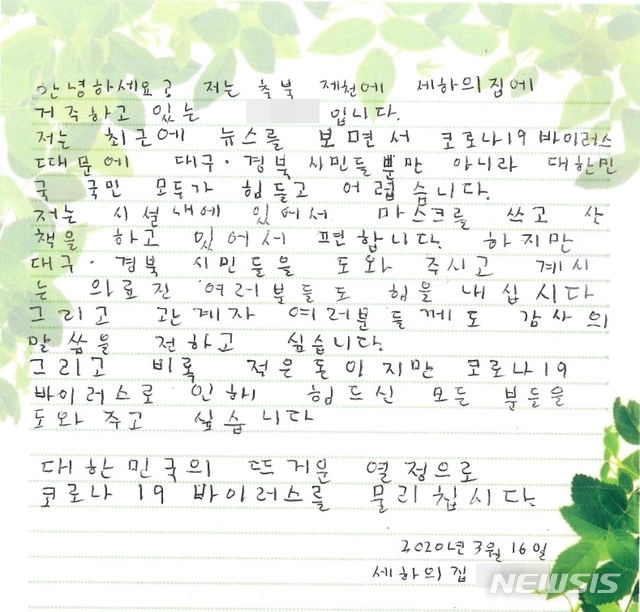 안녕하세요? 저는 충북 제천에 세하의집에
거주하고 있는 입니다.
저는 최근에 뉴스를 보면서 코로나19 바이러스
때문에 대구·경북 시민들뿐만 아니라 대한민
국 국민 모두가 힘들고 어렵습니다.
저는 시설내에 있어서 마스크를 쓰고 산
책을 하고 있어서 편합니다. 하지만
대구·경북 시민들을 도와 주시고 계시
는 의료진 여러분들도 힘을 내십시다
그리고 관계자 여러분들께도 감사의
말씀을 전하고 싶습니다.
그리고 비록 적은돈이지만 코로나19
바이러스로 인해 힘드신 모든 분들을
도와주고 싶습니다
대한민국의 뜨거운 열정으로
코로나 19 바이러스를 물리칩시다.
2020년 3월 16일
세하의집
NEWSIS